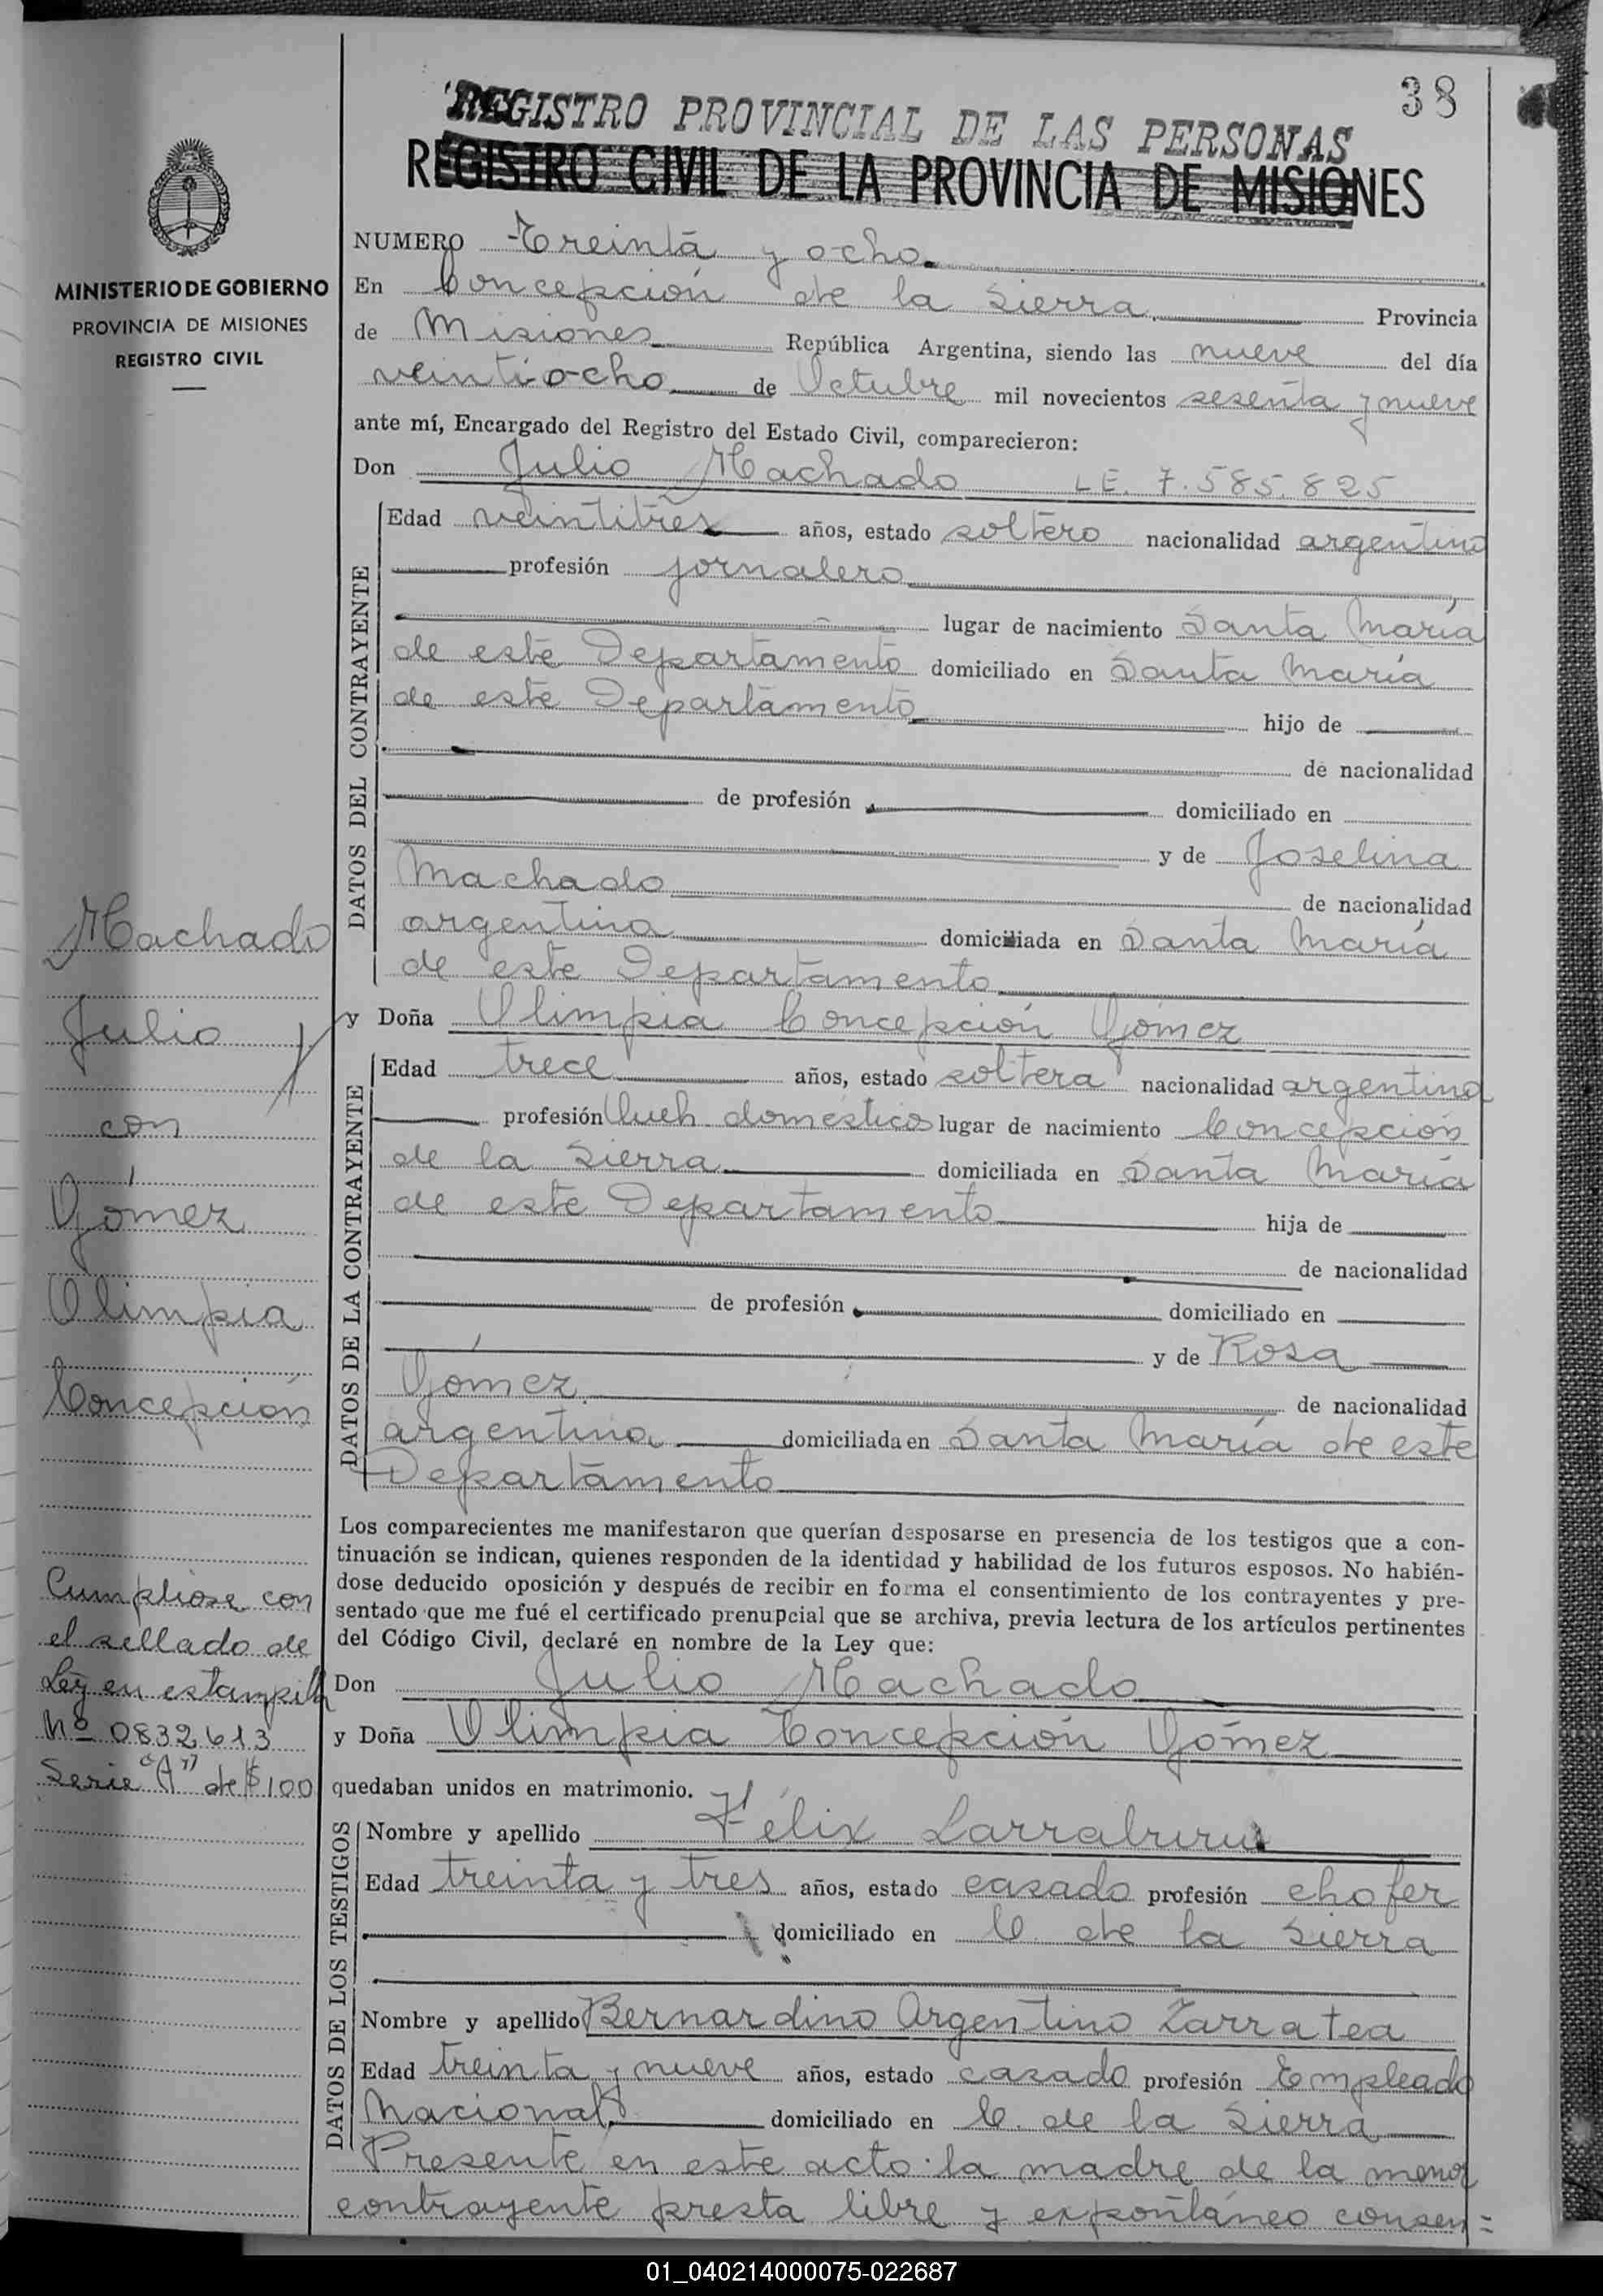 38
REGISTRO PROVINCIAL DE LAS PERSONAS
REGISTRO CIVIL DE LA PROVINCIA DE MISIONES
MINISTERIO DE GOBIERNO
PROVINCIA DE MISIONES
REGISTRO CIVIL
NUMERO Treinta y ocho.
En Concepción de la Sierra Provincia
de Misiones República Argentina, siendo las nueve del día
veintiocho de Octubre mil novecientos sesenta y nueve
ante mí, Encargado del Registro del Estado Civil, comparecieron:
Don Julio Machado L.E. 7.585.825
DATOS DEL CONTRAYENTE
Edad veintitres años, estado soltero nacionalidad argentino
profesión jornalero
lugar de nacimiento Santa María
de este Departamento domiciliado en Santa María
de este Departamento hijo de
de nacionalidad
de profesión domiciliado en
y de Joselina
Machado de nacionalidad
argentina domiciliada en Santa María
de este Departamento
y Doña Olimpia Concepción Gómez
DATOS DE LA CONTRAYENTE
Edad trece años, estado soltera nacionalidad argentina
profesión domésticos lugar de nacimiento Concepción
de la Sierra domiciliada en Santa María
de este Departamento hija de
de nacionalidad
de profesión domiciliado en
y de Rosa
Gómez de nacionalidad
argentina domiciliada en Santa María de este
Departamento
Los comparecientes me manifestaron que querían desposarse en presencia de los testigos que a con-
tinuación se indican, quienes responden de la identidad y habilidad de los futuros esposos. No habién-
dose deducido oposición y después de recibir en forma el consentimiento de los contrayentes y pre-
sentado que me fué el certificado prenupcial que se archiva, previa lectura de los artículos pertinentes
del Código Civil, declaré en nombre de la Ley que:
Don Julio Machado
y Doña Olimpia Concepción Gómez
quedaban unidos en matrimonio.
DATOS DE LOS TESTIGOS
Nombre y apellido Félix
Edad treinta y tres años, estado casado profesión chofer
domiciliado en C. de la Sierra
Nombre y apellido Bernardino Argentino Zarratea
Edad treinta y nueve años, estado casado profesión Empleado
Nacional domiciliado en C. de la Sierra
Presente en este acto la madre de la menor
contrayente presta libre y expontáneo consen=
Machado
Julio
con
Gómez
Olimpia
Concepción
Cumpliose con
el sellado de
Ley en estampilla
Nº 0832613
Serie "A" de $100
01_040214000075-022687